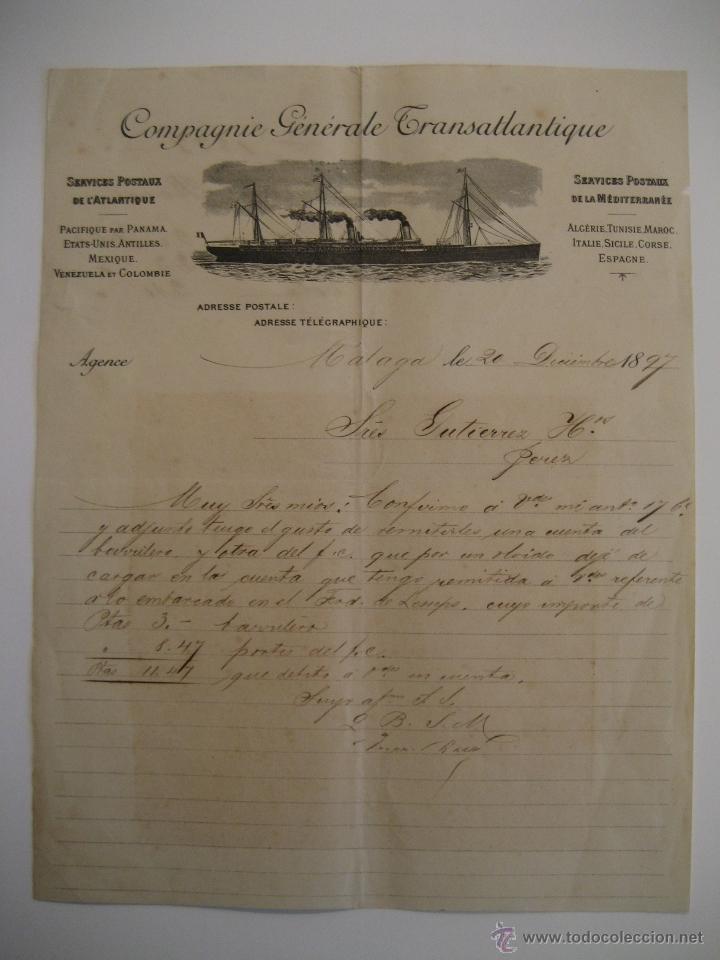 Compagnie Générale Transatlantique
SERVICES POSTAUX
DE L'ATLANTIQUE
PACIFIQUE PAR PANAMA.
ETATS-UNIS, ANTILLES.
MEXIQUE.
VENEZUELA ET COLOMBIE
SERVICES POSTAUX
DE LA MÉDITERRANÉE
ALGÉRIE, TUNISIE, MAROC.
ITALIE, SICILE, CORSE.
ESPAGNE.
ADRESSE POSTALE:
ADRESSE TÉLÉGRAPHIQUE:
Agence Málaga le 20 Diciembre 1897
Srés Gutierrez Hnos
Jerez
Muy Srés mios: Confirmo á Vds mi antr 17 
y adjunto tengo el gusto de remitirles una cuenta del
barrilero y otra del f.c. que por un olvido dejé de
cargar en la cuenta que tengo remitida á Vds referente
a lo embarcado en el Ferd. de Lesseps, cuyo importe de
Ptas 3.- barrilero
" 8.47 portes del f.c.
Ptas 11.47 que debito á Vds en cuenta.
Suyo afmo S.S.
Q B. S. M
www.todocoleccion.net